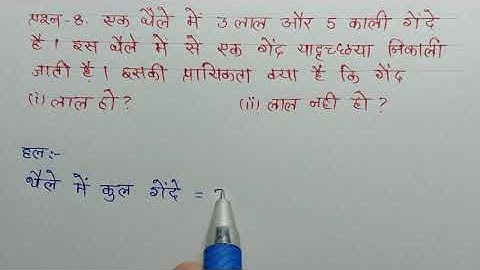 प्रश्न-8. एक थैले में 3 लाल और 5 काली गेंदे
है। इस थैले में से एक गेंद यादृच्छया निकाली
जाती है। इसकी प्रायिकता क्या है कि गेंद
(i) लाल हो ? (ii) लाल नहीं हो ?
हल:-
थैले में कुल गेंदे =